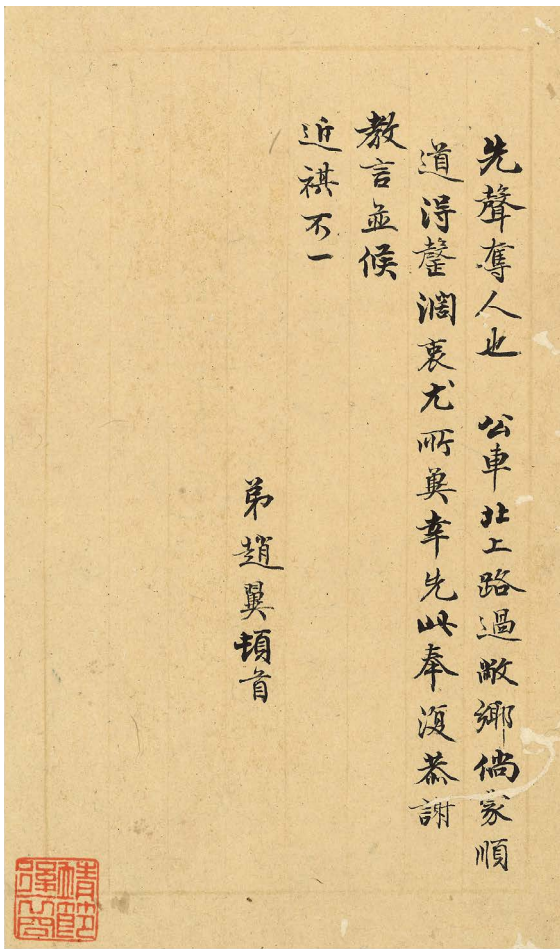 先聲奪人也 公車北上路過敝鄉倘蒙順
道得罄濶衷尤所兾幸先此奉復恭謝
教言並候
近祺不一
弟趙翼頓首